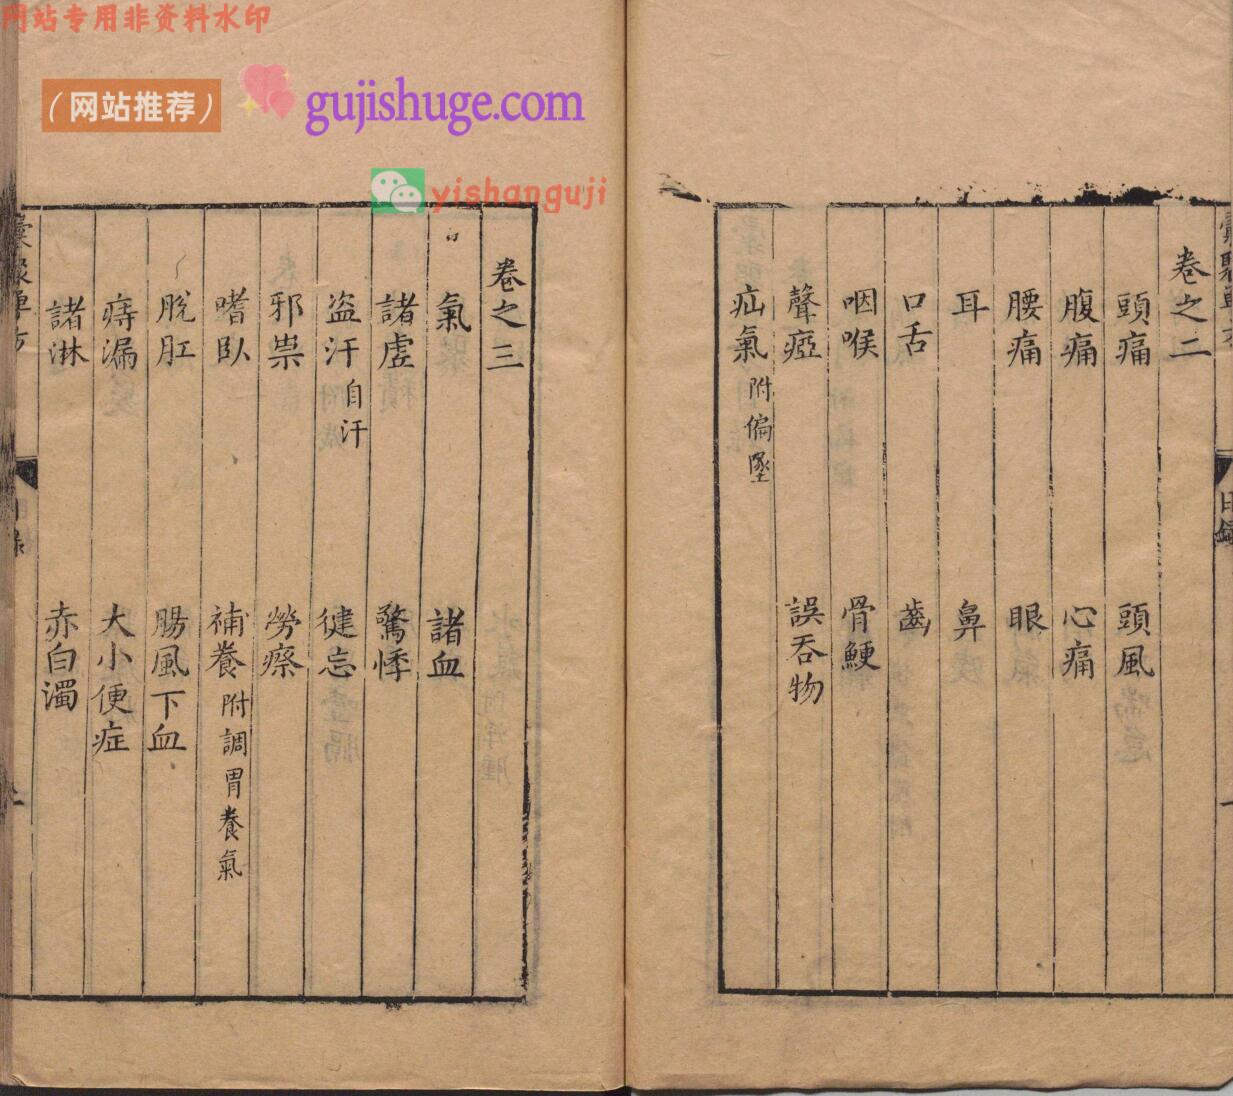 网站专用非资料水印
（网站推荐）
gujishuge.com
yishanguji
卷之二
頭痛 頭風
腹痛 心痛
腰痛 眼
耳 鼻
口舌 齒
咽喉 骨鯁
聲瘂 誤吞物
疝氣 附偏墜
目錄
卷之三
氣 諸血
諸虛 驚悸
盜汗 自汗 健忘
邪祟 勞瘵
嗜臥 補養 附調胃養氣
脫肛 腸風下血
痔漏 大小便症
諸淋 赤白濁